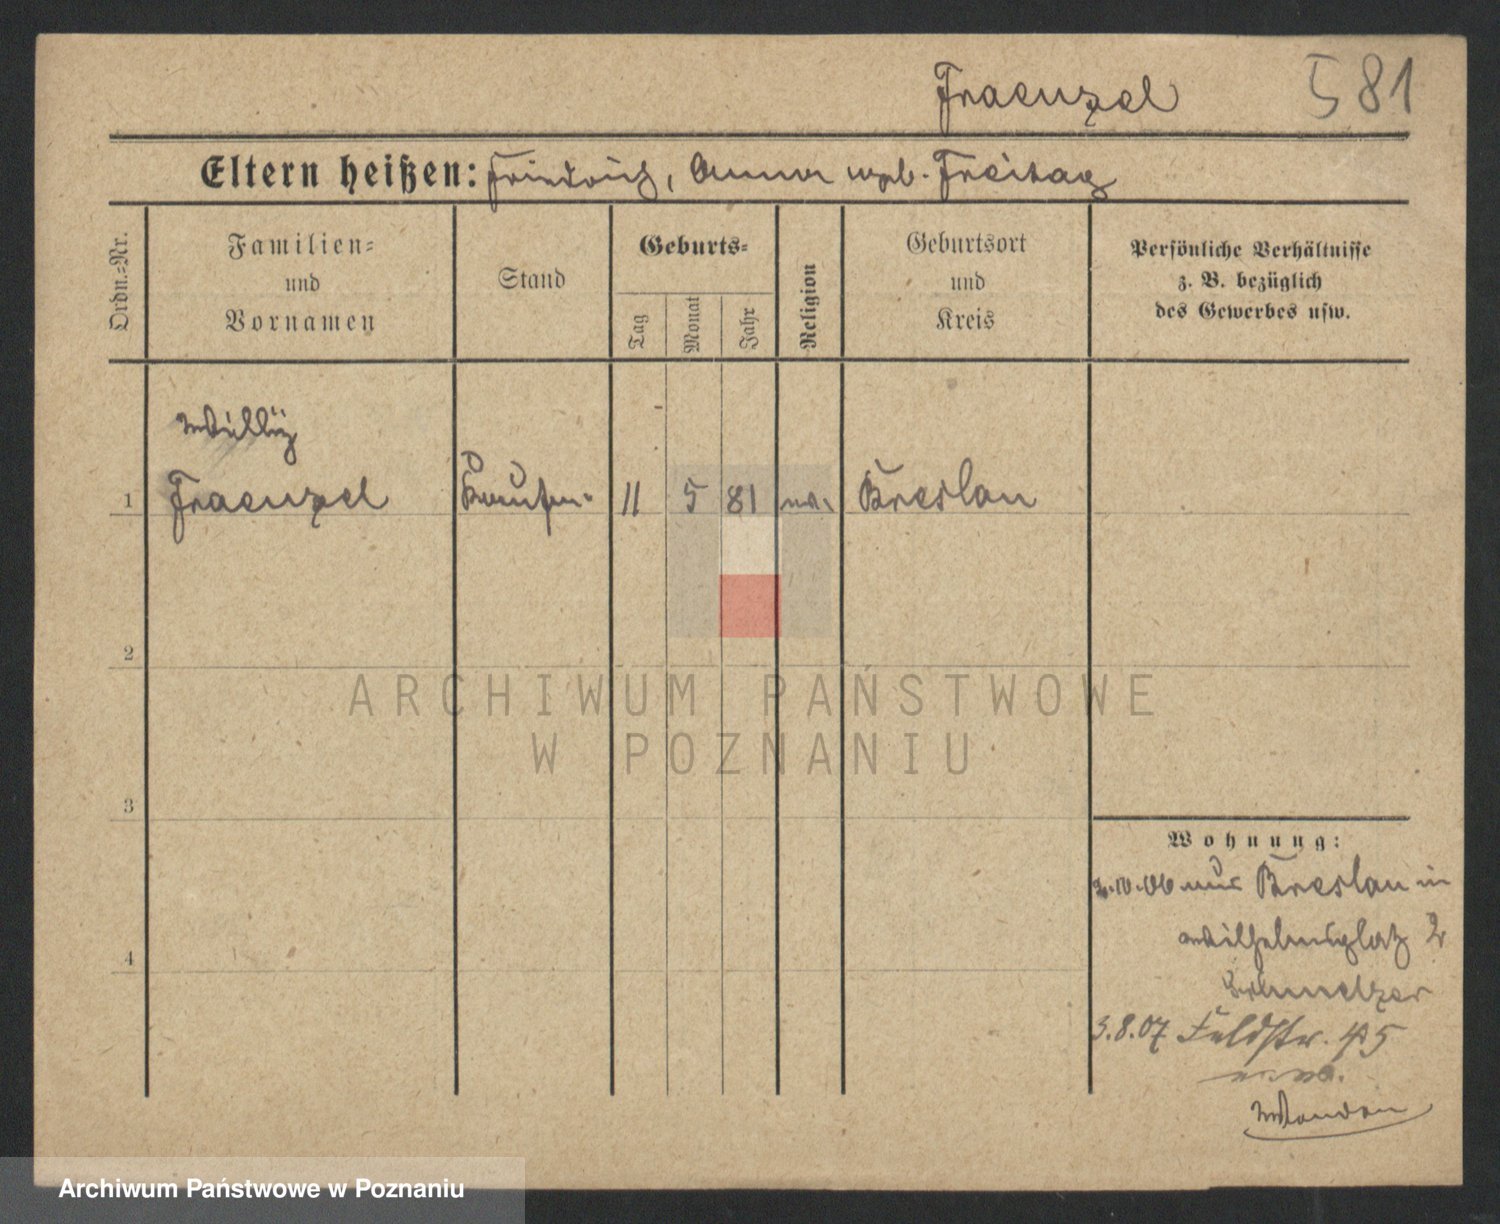 Fraenzel 581
Eltern heißen: Friedrich, Anna geb. Freitag
Ordn.=Nr.
Familien=
und
Vornamen
Stand
Geburts=
Tag
Monat
Jahr
Religion
Geburtsort
und
Kreis
Persönliche Verhältnisse
z. B. bezüglich
des Gewerbes usw.
Willy
1 Fraenzel Kaufm. 11 5 81 Breslau
2
3
4
Wohnung:
10.06 aus Breslau in
Wilhelmsplatz 2
Schmelzer
3.8.07 Feldstr.
ARCHIWUM PAŃSTWOWE
W POZNANIU
Archiwum Państwowe w Poznaniu